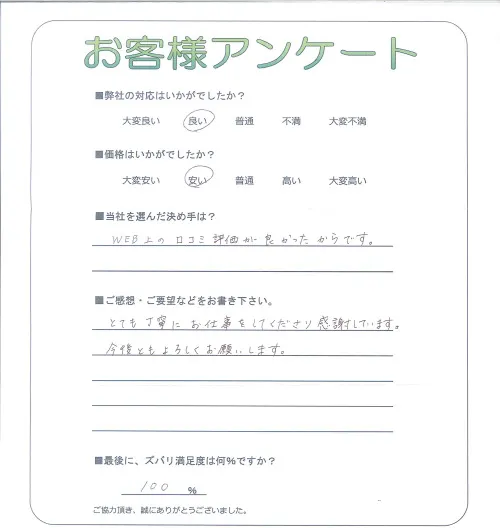 お客様アンケート
■弊社の対応はいかがでしたか？
大変良い 良い 普通 不満 大変不満
■価格はいかがでしたか？
大変安い 安い 普通 高い 大変高い
■当社を選んだ決め手は？
WEB上の口コミ評価が良かったからです。
■ご感想・ご要望などをお書き下さい。
とても丁寧にお仕事をしてくださり感謝しています。
今後ともよろしくお願いします。
■最後に、ズバリ満足度は何％ですか？
100 ％
ご協力頂き、誠にありがとうございました。